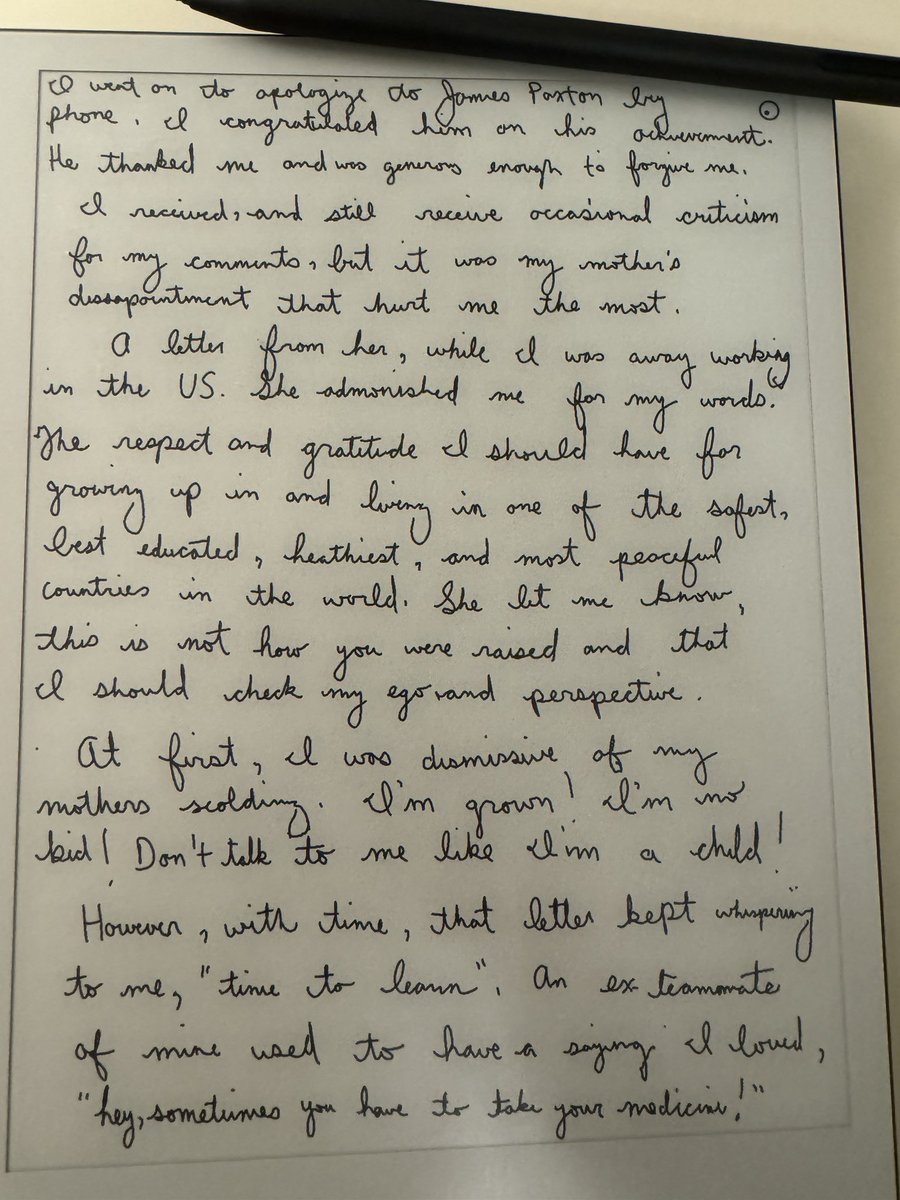 I went on to apologize to James Paxton by
phone. I congratulated him on his achievement.
He thanked me and was generous enough to forgive me.
I received, and still receive occasional criticism
for my comments, but it was my mother's
dissapointment that hurt me the most.
A letter from her, while I was away working
in the US. She admonished me for my words.
The respect and gratitude I should have for
growing up in and living in one of the safest,
best educated, heathiest, and most peaceful
countries in the world. She let me know,
this is not how you were raised and that
I should check my ego and perspective.
At first, I was dismissive of my
mothers scolding. I'm grown! I'm no
kid! Don't talk to me like I'm a child!
However, with time, that letter kept whispering
to me, "time to learn". An ex-teammate
of mine used to have a saying I loved,
"hey, sometimes you have to take your medicine!"